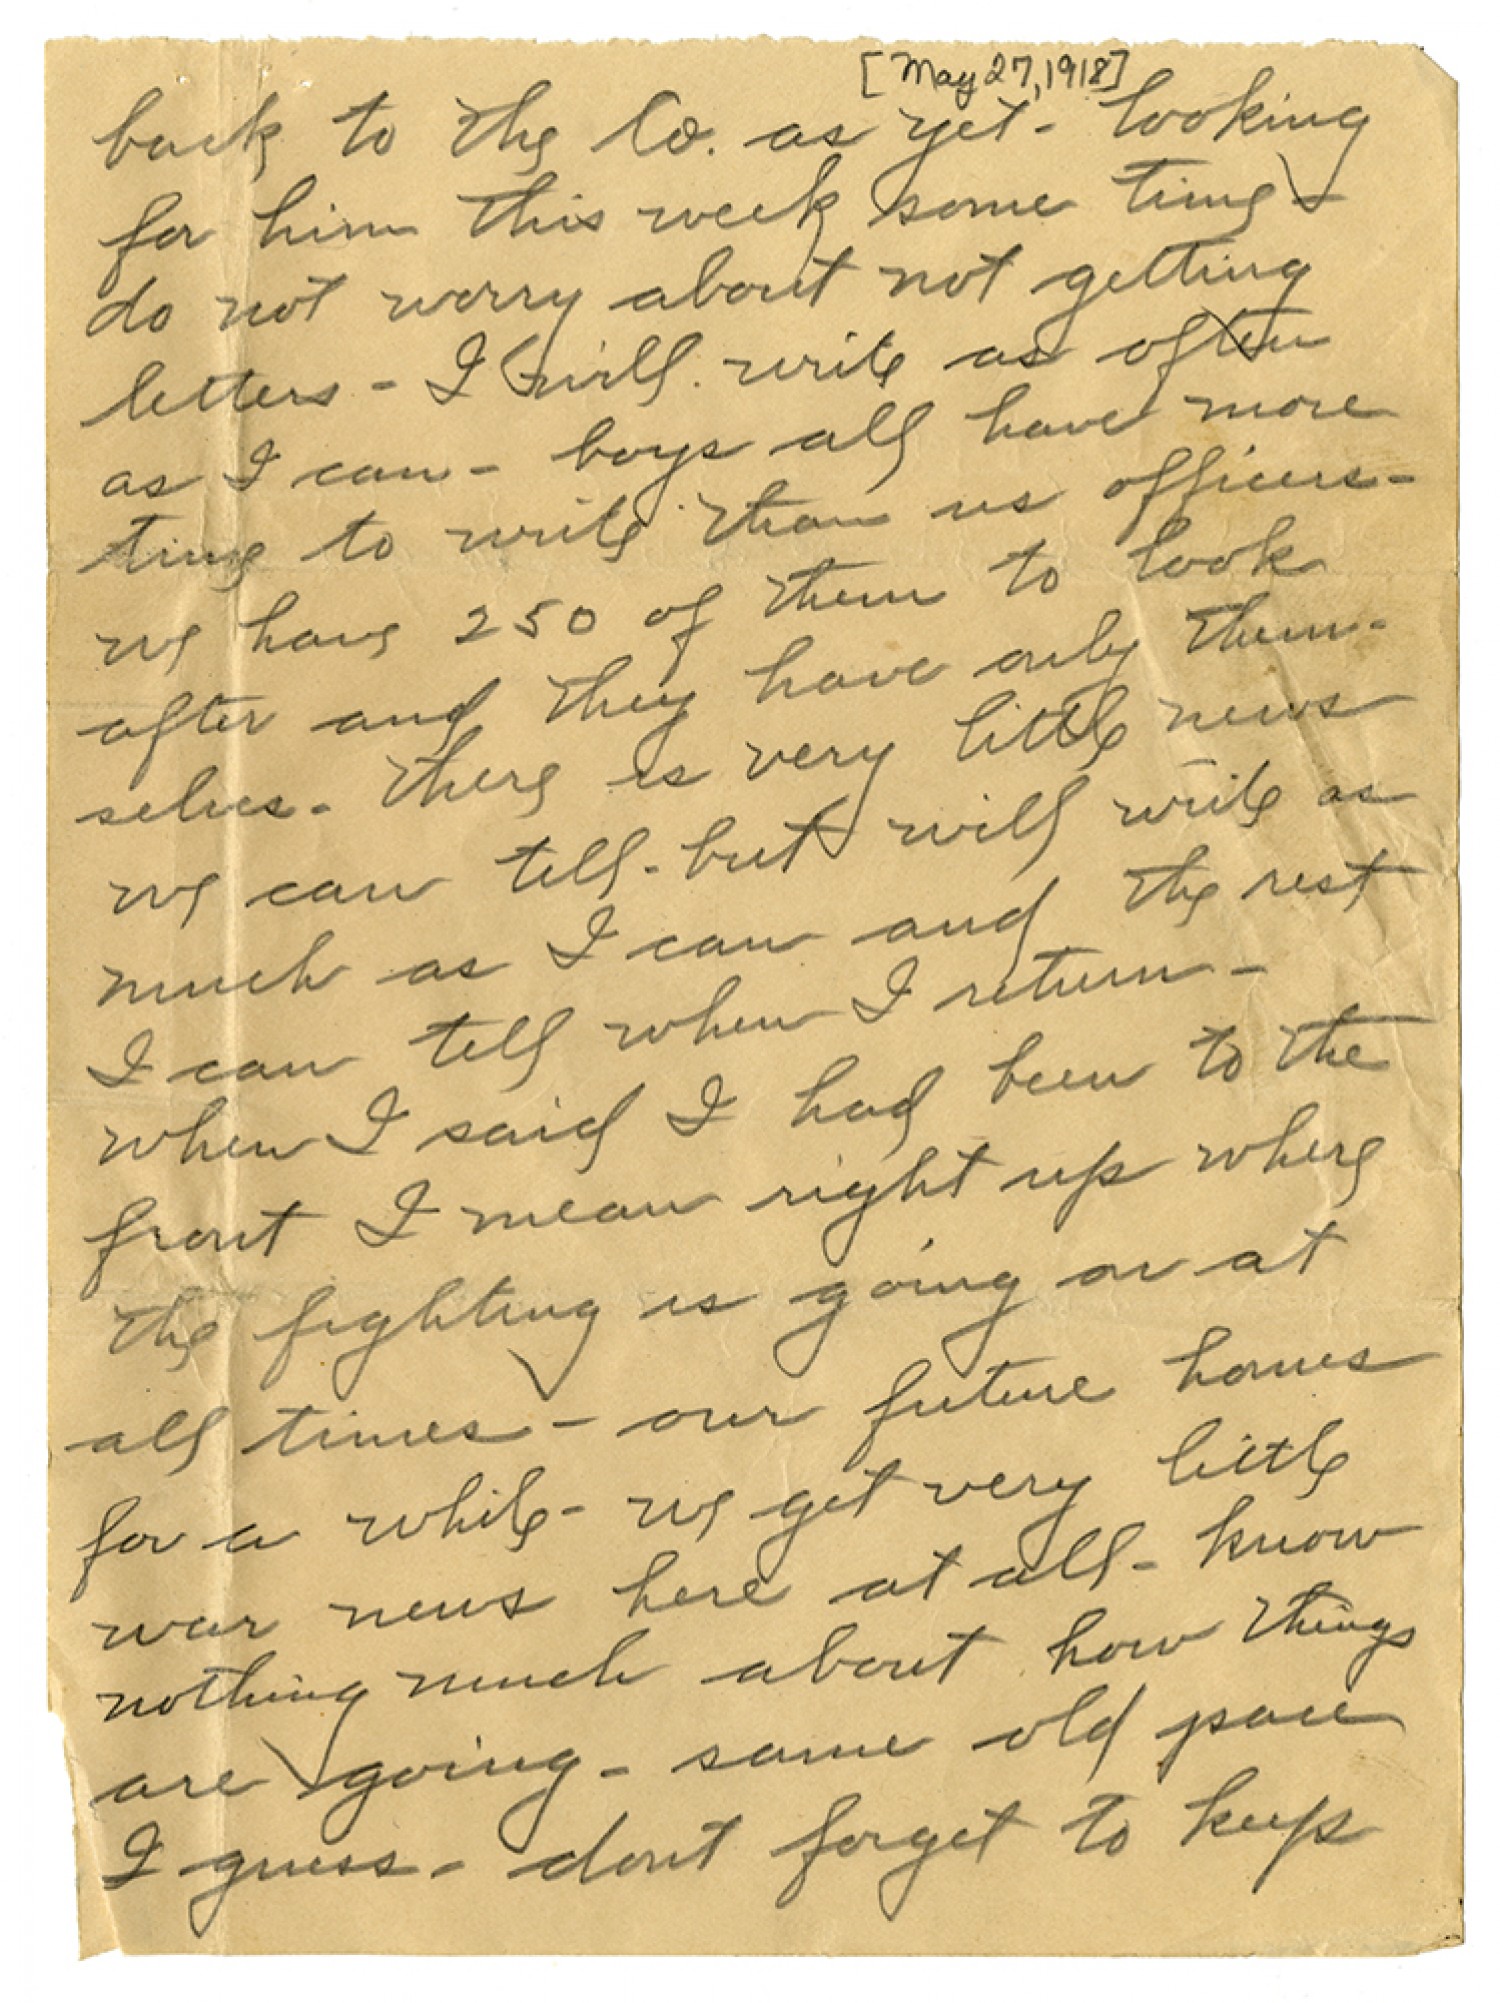 [May 27, 1918]
back to the Co. as yet - looking
for him this week some time -
do not worry about not getting
letters - I will write as often
as I can - boys all have more
time to write than us officers -
we have 250 of them to look
after and they have only them-
selves - there is very little news
we can tell - but will write as
much as I can and the rest
I can tell when I return -
when I said I had been to the
front I mean right up where
the fighting is going on at
all times - our future homes
for a while - we get very little
war news here at all - know
nothing much about how things
are going - same old pace
I guess - dont forget to keep